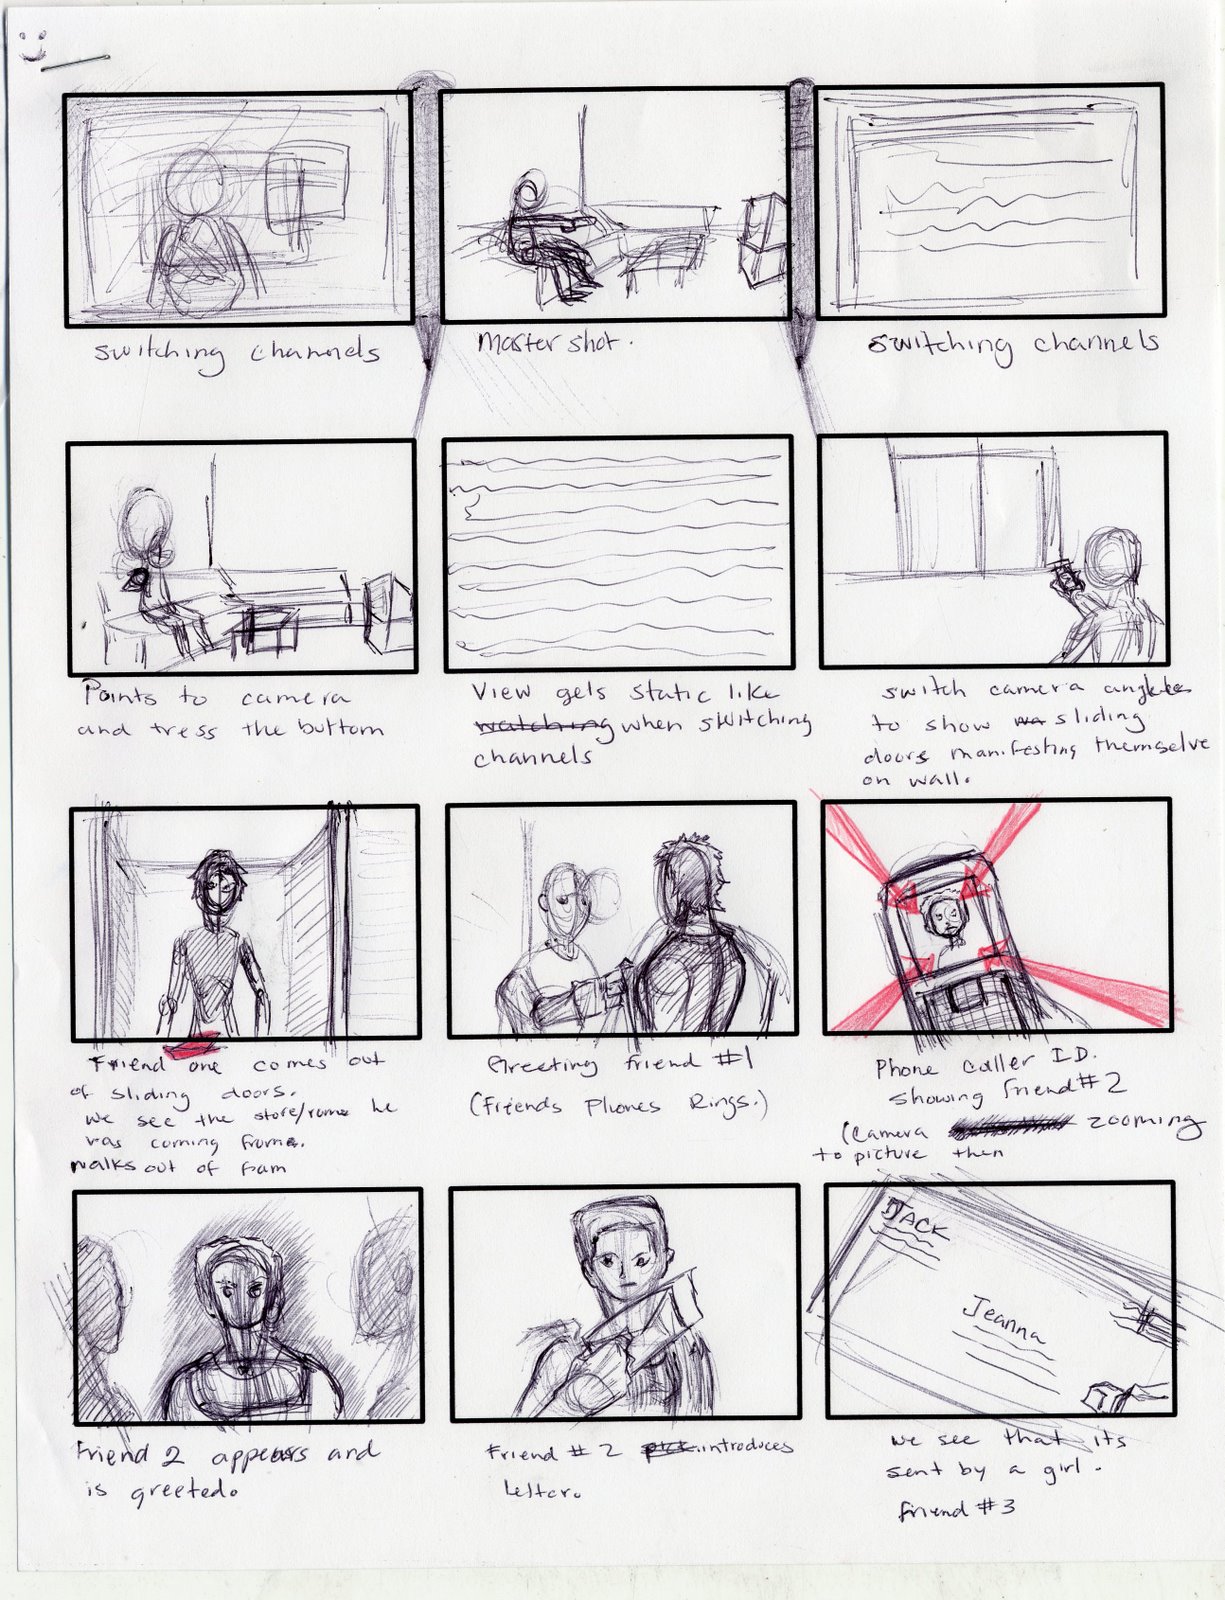 switching channels
Master shot.
switching channels
Points to camera
and tress the buttom
View gets static like
watching when switching
channels
switch camera angles
to show wa sliding
doors manifesting themselve
on wall.
Friend one comes out
of sliding doors.
we see the store/rume he
ras coming frome.
walks out of fram
Greeting friend #1
(Friends Phones Rings.)
Phone caller I.D.
showing friend #2
(camera zooming
to picture then
JACK
Jeanna
Friend 2 appears and
is greeted.
Friend # 2 pick introduces
letter.
we see that its
sent by a girl.
friend #3